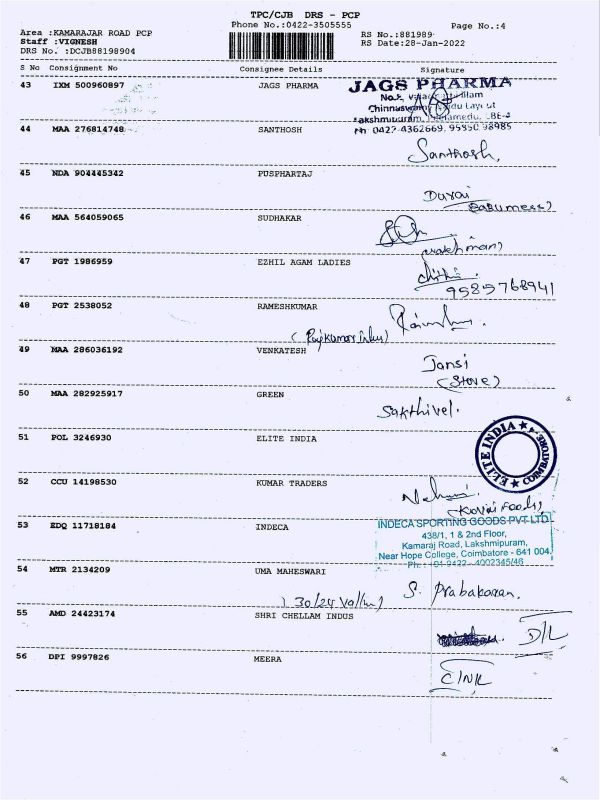 TPC/CJB DRS - PCP
Area :KAMARAJAR ROAD PCP
Phone No.:0422-3505555
Page No.:4
Staff :VIGNESH
RS No.:881989
DRS No. :DCJB88198904
RS Date:28-Jan-2022
S No Consignment No Consignee Details Signature
43 IXM 500960897 JAGS PHARMA
JAGS PHARMA
Chinnuswamy Naidu Layout
Lakshmipuram, Peelamedu, CBE-4
Ph 0422-4362669, 95850 98985
44 MAA 276814748 SANTHOSH
Santhosh,
45 NDA 904445342 PUSPHARTAJ
Durai
46 MAA 564059065 SUDHAKAR
(watchman)
47 PGT 1986959 EZHIL AGAM LADIES
9585768941
48 PGT 2538052 RAMESHKUMAR
49 MAA 286036192 VENKATESH
Jansi
(Store)
50 MAA 282925917 GREEN
Sakthivel.
51 POL 3246930 ELITE INDIA
ELITE INDIA
COIMBATORE
52 CCU 14198530 KUMAR TRADERS
(Kovai Foods)
53 EDQ 11718184 INDECA
INDECA SPORTING GOODS PVT LTD
438/1, 1 & 2nd Floor,
Kamaraj Road, Lakshmipuram,
Near Hope College, Coimbatore - 641 004.
Ph.: +91 0422 - 4002345/46
54 MTR 2134209 UMA MAHESWARI
S. Prabakaran.
55 AMD 24423174 SHRI CHELLAM INDUS
D/L
56 DPI 9997826 MEERA
C/NR